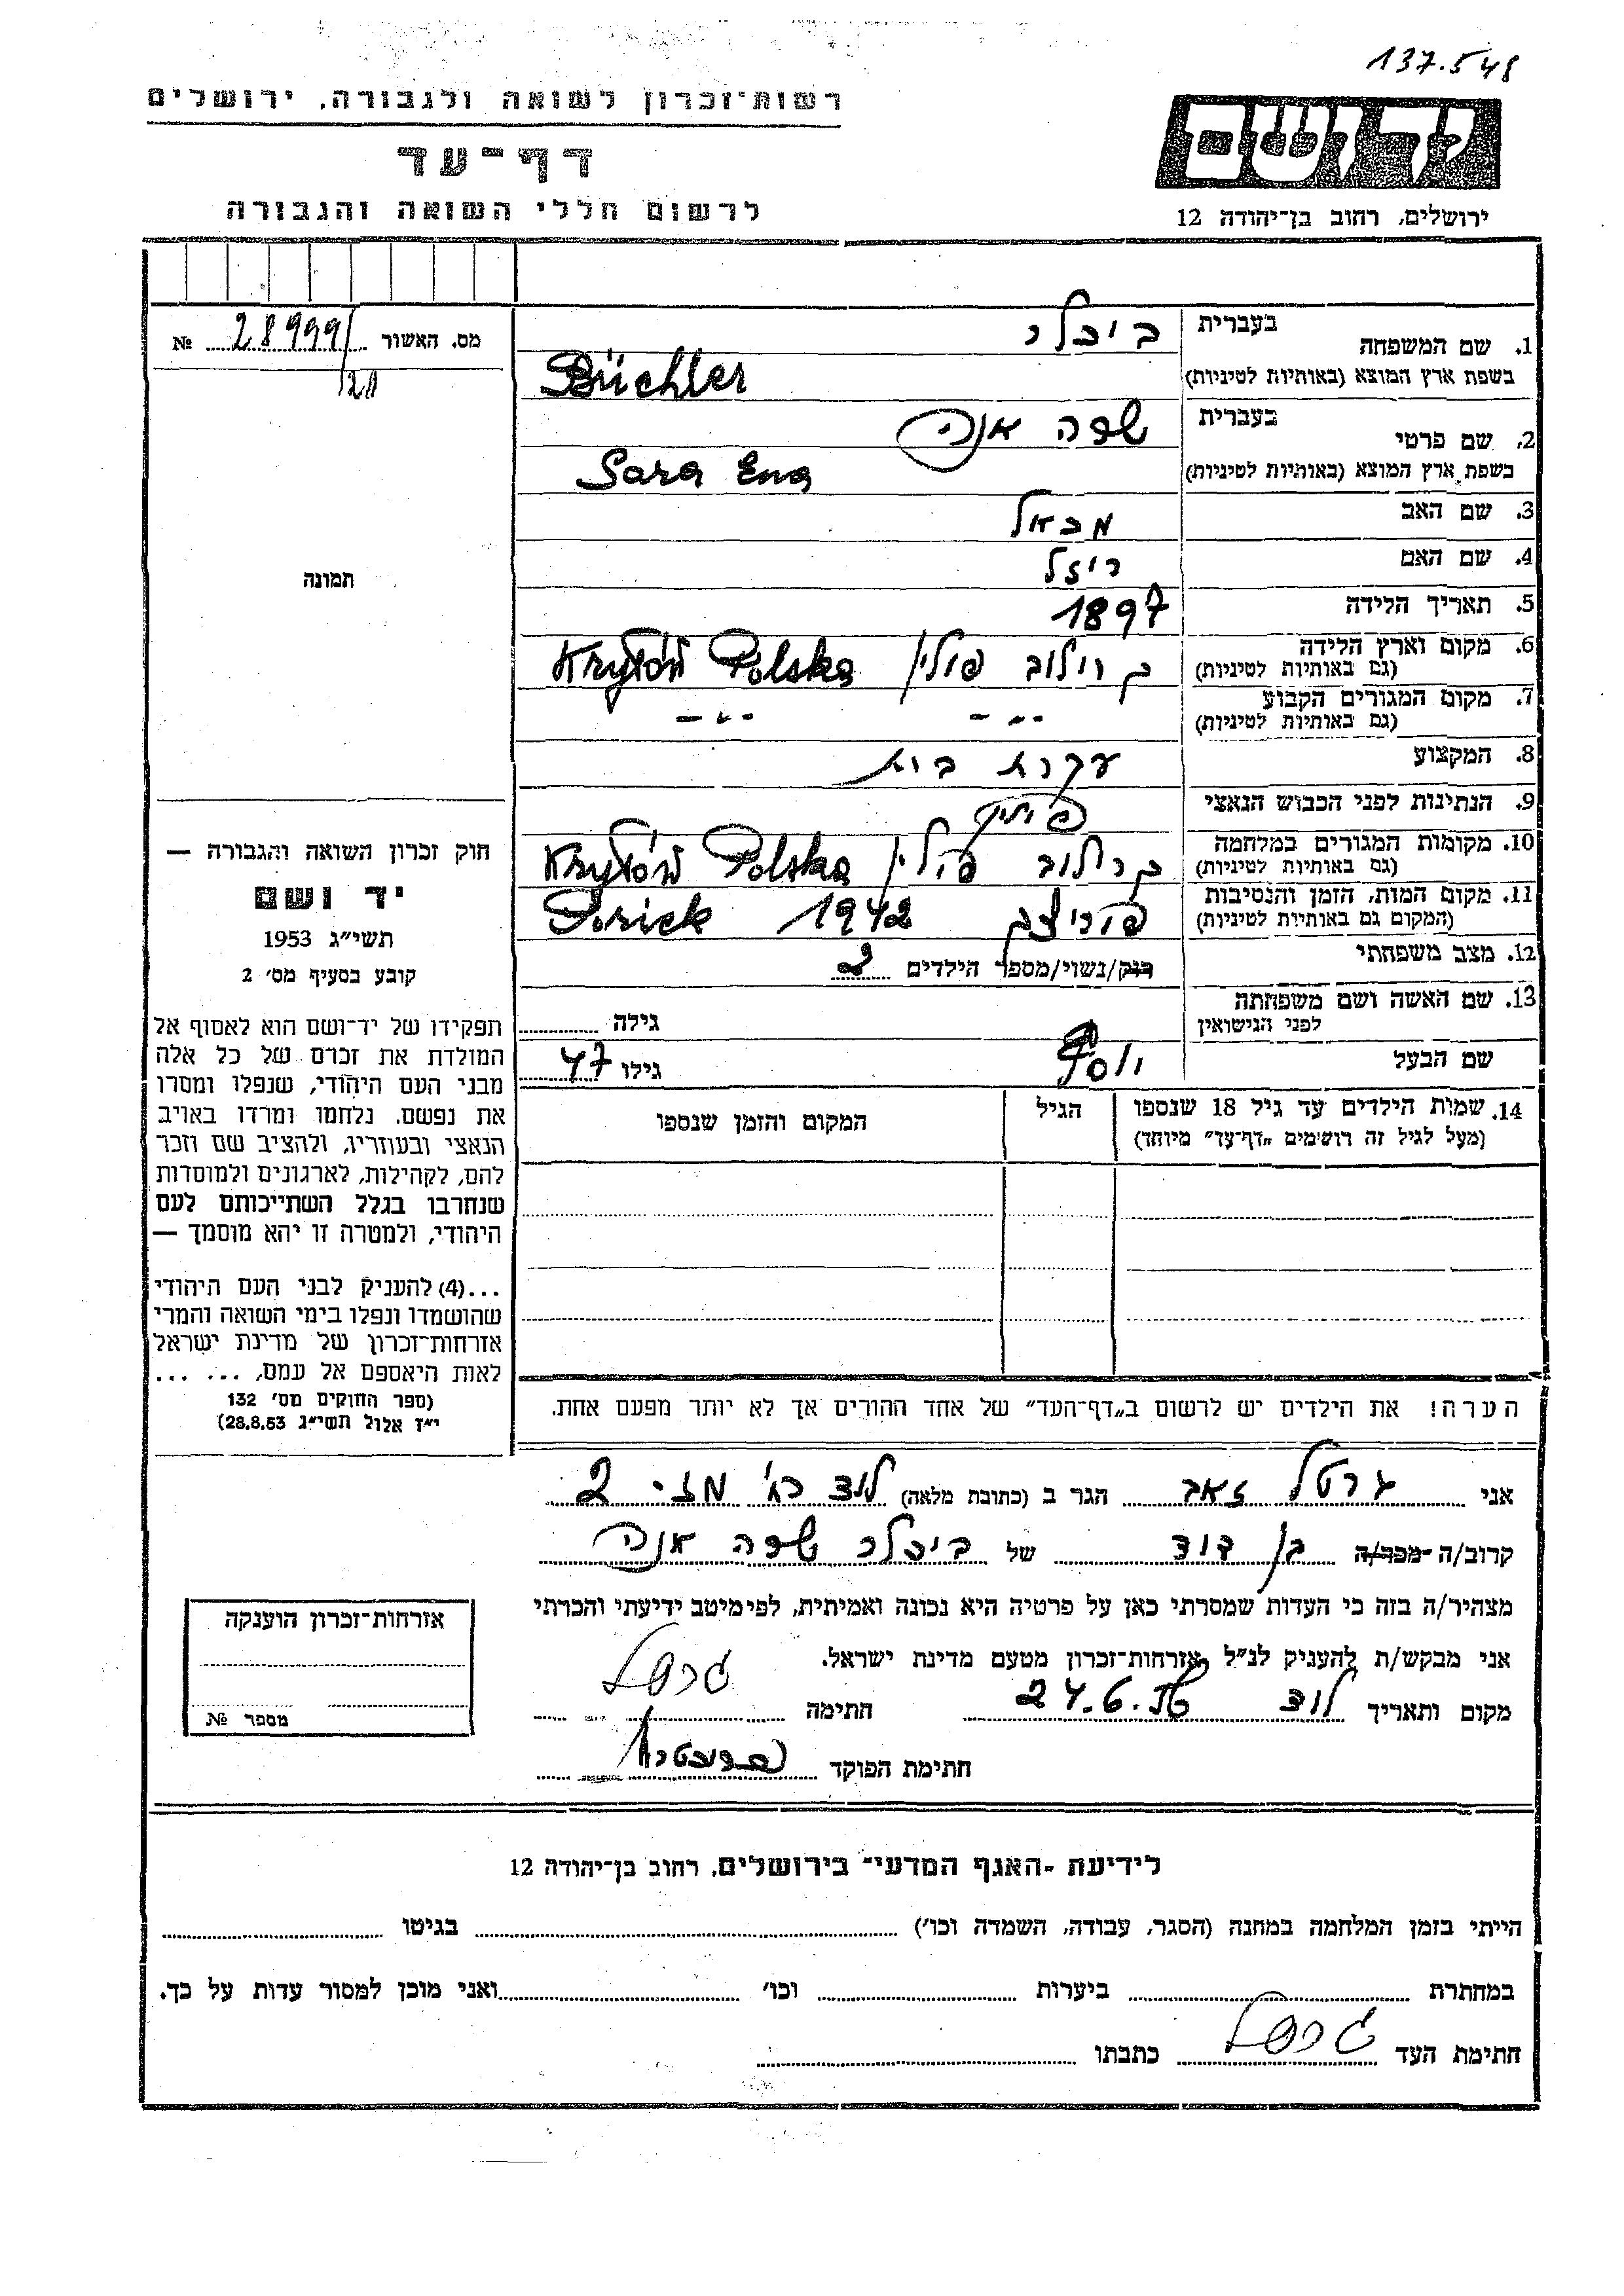 137.548
רשות־זכרון לשואה ולגבורה, ירושלים
דף־עד
לרשום חללי השואה והגבורה
יד ושם
ירושלים, רחוב בן־יהודה 12
מס. האשור 28999/ №
/211
תמונה
1. שם המשפחה בעברית ביכלר
בשפת ארץ המוצא (באותיות לטיניות) Büchler
2. שם פרטי בעברית שרה אנה
בשפת ארץ המוצא (באותיות לטיניות) Sara Ena
3. שם האב מכאל
4. שם האם ריזל
5. תאריך הלידה 1897
6. מקום וארץ הלידה (גם באותיות לטיניות) קרילוב פולין Kryłów Polska
7. מקום המגורים הקבוע (גם באותיות לטיניות) -״- -״-
8. המקצוע עקרת בית
9. הנתינות לפני הכבוש הנאצי פולין
10. מקומות המגורים במלחמה (גם באותיות לטיניות) קרילוב פולין Kryłów Polska
11. מקום המות, הזמן והנסיבות (המקום גם באותיות לטיניות) פוריצק 1942 Porick
12. מצב משפחתי רוק/נשוי/מספר הילדים 2
13. שם האשה ושם משפחתה לפני הנישואין גילה
שם הבעל יוסף גילו 47
14. שמות הילדים עד גיל 18 שנספו (מעל לגיל זה רושמים „דף־עד” מיוחד) הגיל המקום והזמן שנספו
חוק זכרון השואה והגבורה —
יד ושם
תשי״ג 1953
קובע בסעיף מס׳ 2
תפקידו של יד־ושם הוא לאסוף אל
המולדת את זכרם של כל אלה
מבני העם היהודי, שנפלו ומסרו
את נפשם, נלחמו ומרדו באויב
הנאצי ובעוזריו, ולהציב שם וזכר
להם, לקהילות, לארגונים ולמוסדות
שנחרבו בגלל השתייכותם לעם
היהודי, ולמטרה זו יהא מוסמך —
...(4) להעניק לבני העם היהודי
שהושמדו ונפלו בימי השואה והמרי
אזרחות־זכרון של מדינת ישראל
לאות היאספם אל עמם, ... ...
(ספר החוקים מס׳ 132
י״ז אלול תשי״ג 28.8.53)
הערה! את הילדים יש לרשום ב„דף־העד” של אחד ההורים אך לא יותר מפעם אחת.
אני גרטל זאב הגר ב (כתובת מלאה) לוד רח׳ מזי 2
קרוב/ה מכר/ה בן דוד של ביכלר שרה אנה
מצהיר/ה בזה כי העדות שמסרתי כאן על פרטיה היא נכונה ואמיתית, לפי מיטב ידיעתי והכרתי
אני מבקש/ת להעניק לנ״ל אזרחות־זכרון מטעם מדינת ישראל.
מקום ותאריך לוד 24.6. חתימה גרטל
חתימת הפוקד
אזרחות־זכרון הוענקה
מספר №
לידיעת „האגף המדעי” בירושלים, רחוב בן־יהודה 12
הייתי בזמן המלחמה במחנה (הסגר, עבודה, השמדה וכו׳) בגיטו
במחתרת ביערות וכו׳ ואני מוכן למסור עדות על כך.
חתימת העד גרטל כתבתו